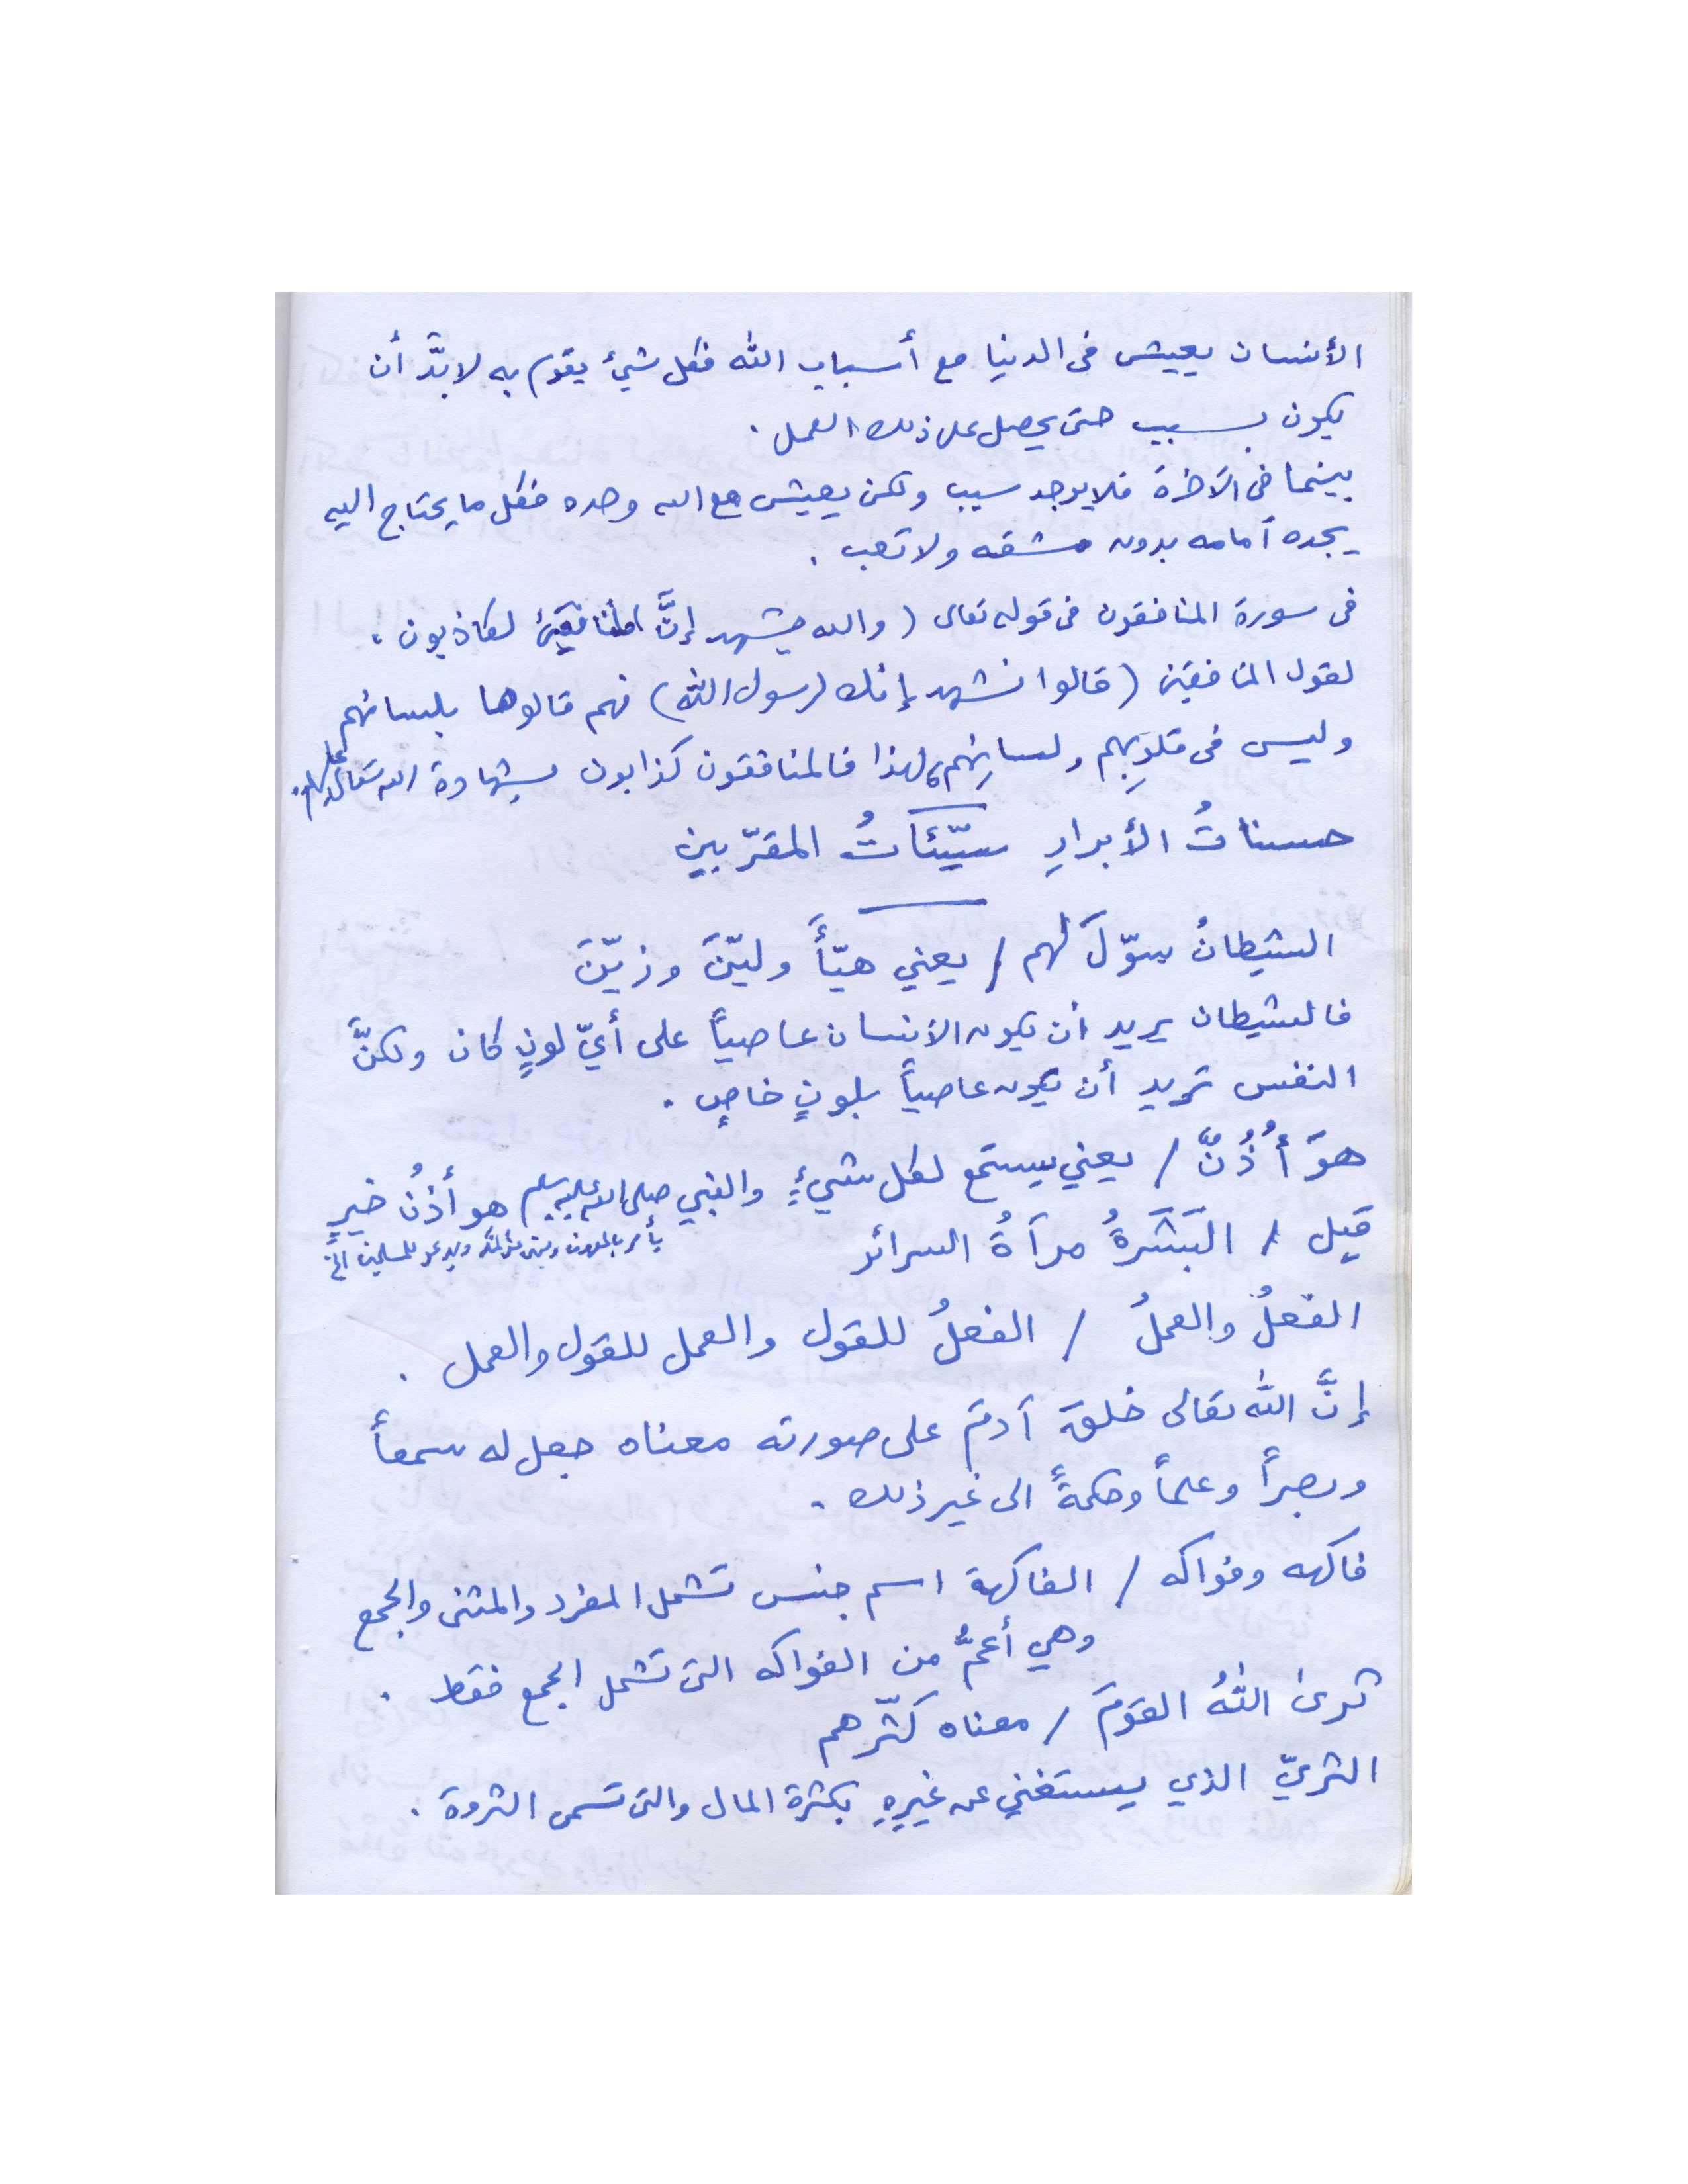 الأنسان يعيش فى الدنيا مع أسباب الله فكل شيئ يقوم به لابدَّ أن
يكون بسبب حتى يحصل على ذلك العمل .
بينما فى الآخرة فلا يوجد سبب ولكن يعيش مع الله وحده فكل ما يحتاج اليه
يجده أمامه بدون مشقه ولا تعب .
فى سورة المنافقون فى قوله تعالى ( والله يشهد إنَّ المنافقين لكاذبون ،
لقول المنافقين ( قالوا نشهد إنك لرسول الله ) فهم قالوها بلسانهم
وليس فى قلوبِهم ولسانِهم، لهذا فالمنافقون كذابون بشهادة الله تعالى عليهم .
حسناتُ الأبرارِ سيّئَاتُ المقرّبين
الشيطانُ سوّلَ لهم / يعني هيّأَ وليّنَ وزيّنَ
فالشيطان يريد أن يكون الأنسان عاصياً على أيّ لونٍ كان ولكنَّ
النفس تريد أن يكون عاصياً بلونٍ خاصٍ .
هوَ أُذُنٌ / يعني يستمع لكل شيءٍ والنبي صلى الله عليه وسلم هو أذُنُ خيرٍ
يأمر بالمعروف وينهى عن المنكر ويدعو للمسلمين الخ
قيل / البَشَرةُ مرآةُ السرائر
الفعلُ والعملُ / الفعلُ للقول والعمل للقول والعمل .
إنَّ الله تعالى خلقَ آدمَ على صورته معناه جعل له سمعاً
وبصراً وعلماً وحكمةً الى غير ذلك .
فاكهه وفواكه / الفاكهة اسم جنس تشمل المفرد والمثنى والجمع
وهي أعمُّ من الفواكه التى تشمل الجمع فقط .
ثرىٰ اللهُ القومَ / معناه كثّرهم
الثريّ الذي يستغني عن غيرِهِ بكثرة المال والتى تسمى الثروة .